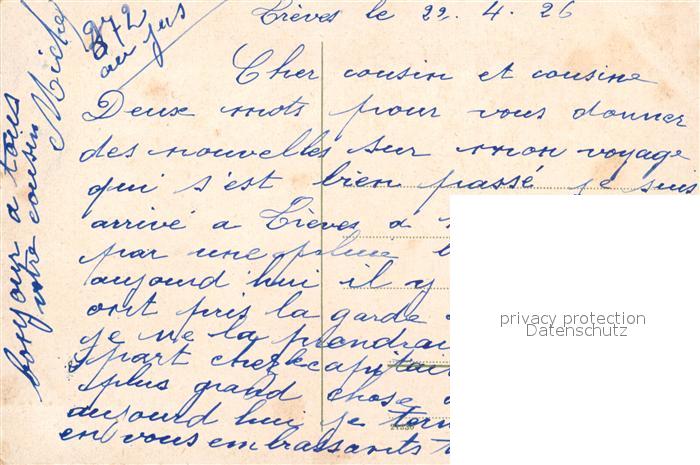 Trèves le 22. 4. 26
Cher cousin et cousine
Deux mots pour vous donner
des nouvelles sur mon voyage
qui s'est bien passé je suis
arrivé a Trèves a
par une pluie
aujourd'hui il y
ont pris la garde
je ne la prendrai
part chez capitai
plus grand chose
aujourd'hui je ter
en vous embrassants
bonjour a tous
votre cousin
Michel
972
au jus
privacy protection
Datenschutz